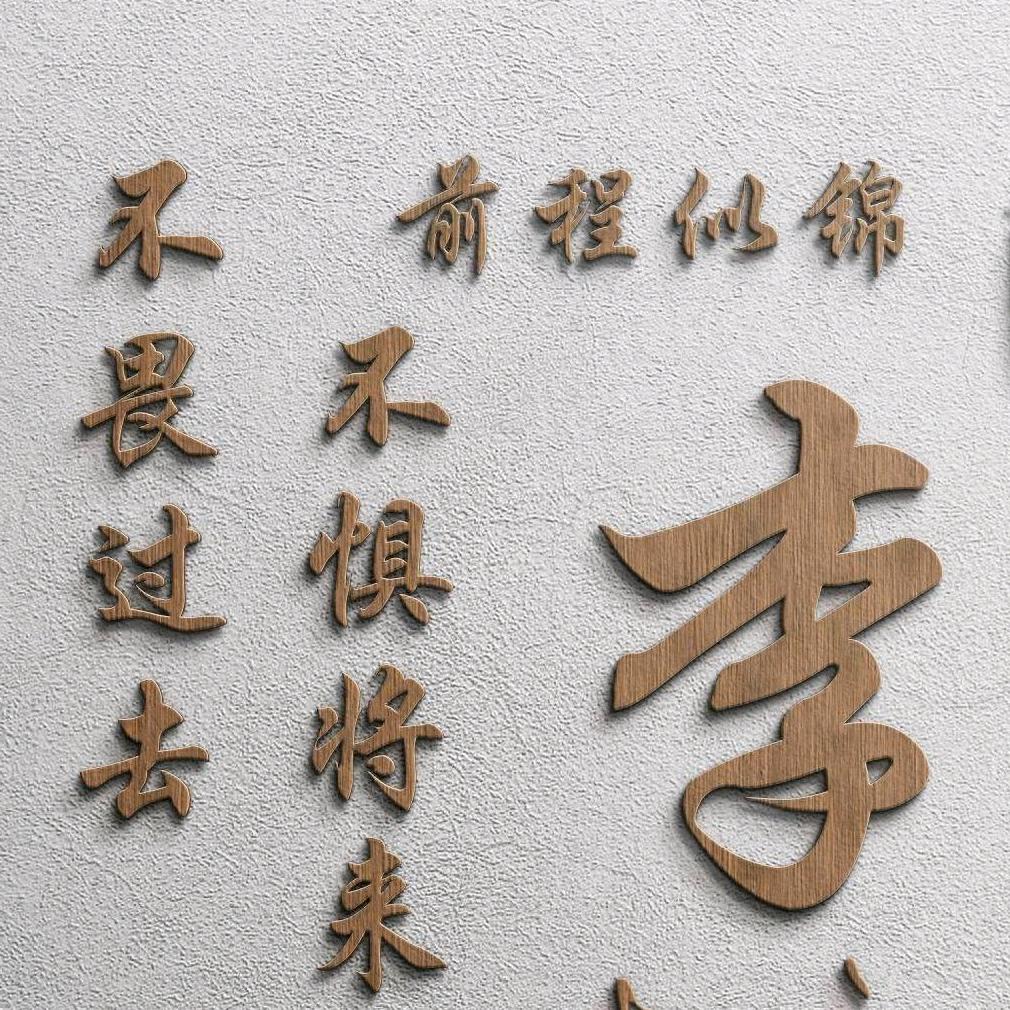 前程似锦
不畏过去
不惧将来
李